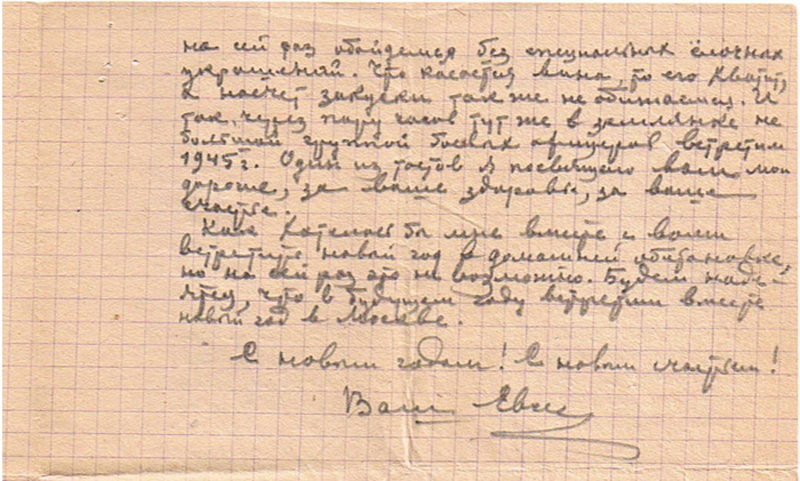 на сей раз обойдемся без специальных ёлочных
украшений. Что касается вина, то его хватит,
а насчет закуски так же не обижаемся. И
так, через пару часов тут же в землянке не
большой группой боевых офицеров встретим
1945 г. Один из тостов я посвящаю вам мои
дорогие, за ваше здоровье, за ваше
счастье.
Как хотелось бы мне вместе с вами
встретить новый год в домашней обстановке,
но на сей раз это не возможно. Будем наде-
яться, что в будущем году встретим вместе
новый год в Москве.
С новым годом! С новым счастьем!
Ваш Евг